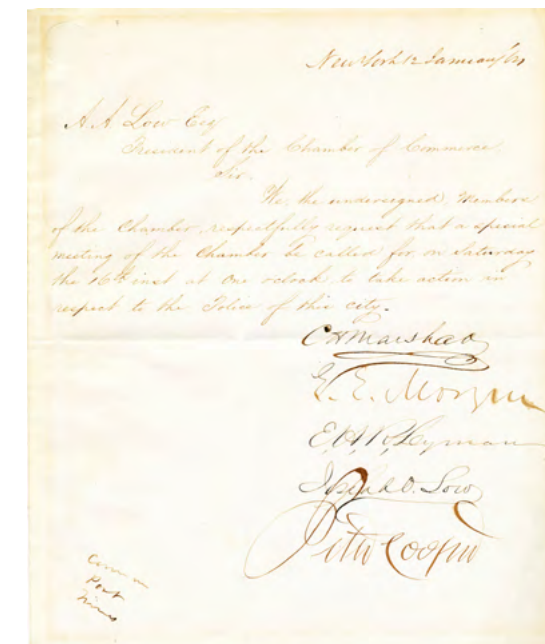 New York 12 January/64
A A Low Esq
President of the Chamber of Commerce
Sir.
We, the undersigned, Members
of the Chamber, respectfully request that a special
meeting of the Chamber be called for, on Saturday
the 16th inst at One o'clock, to take action in
respect to the Police of this city.
C H Marshall
E. E. Morgan
Lyman
Josiah O. Low
Peter Cooper
Post